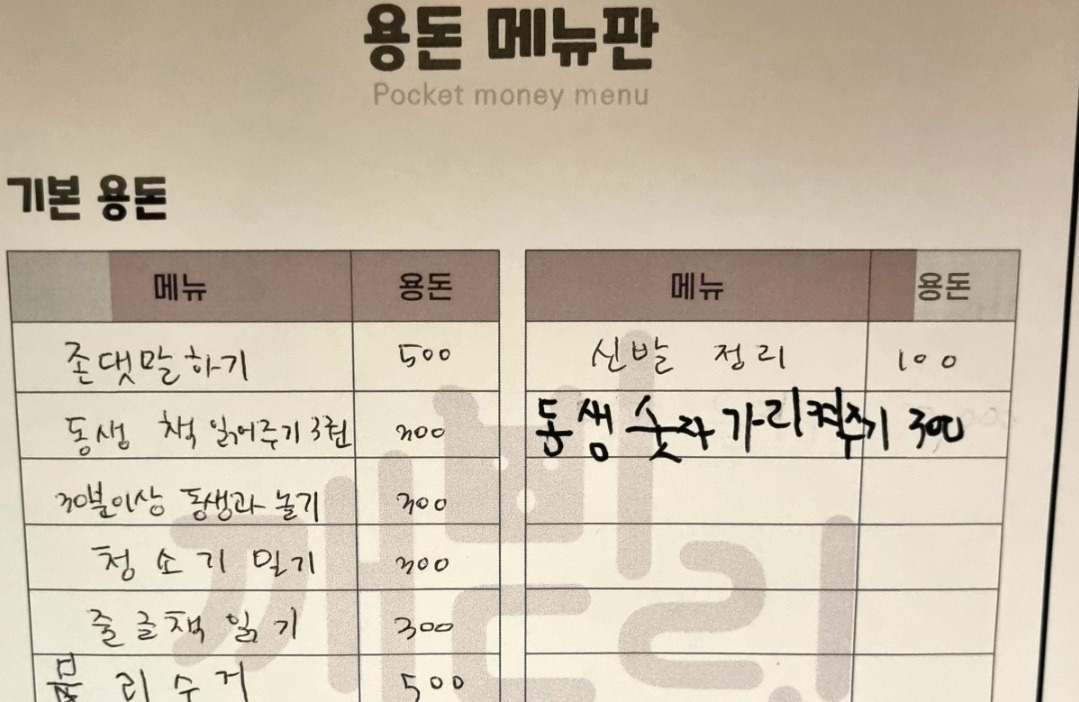 용돈 메뉴판
Pocket money menu
기본 용돈
메뉴 용돈
존댓말하기 500
동생 책 읽어주기 3권 300
30분이상 동생과 놀기 300
청소기 밀기 300
줄글책 읽기 300
분리수거 500
메뉴 용돈
신발 정리 100
동생 숫자 가리켜주기 300